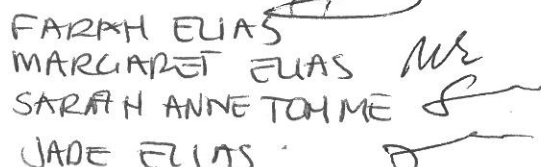 FARAH ELIAS
MARGARET ELIAS
SARAH ANNE TOHME
JADE ELIAS